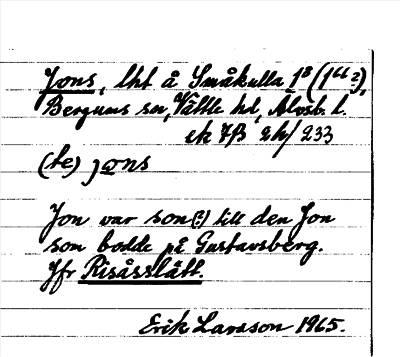 Jons, lht å Småkulla 1⁸ (1⁶⁶ ²),
Bergums sn, Vättle hd, Älvsb. l.
ek 7B 2h/233
(te) jons
Jon var son(?) till den Jon
som bodde på Gustavsberg.
Jfr Risåsslätt.
Erik Larsson 1965.